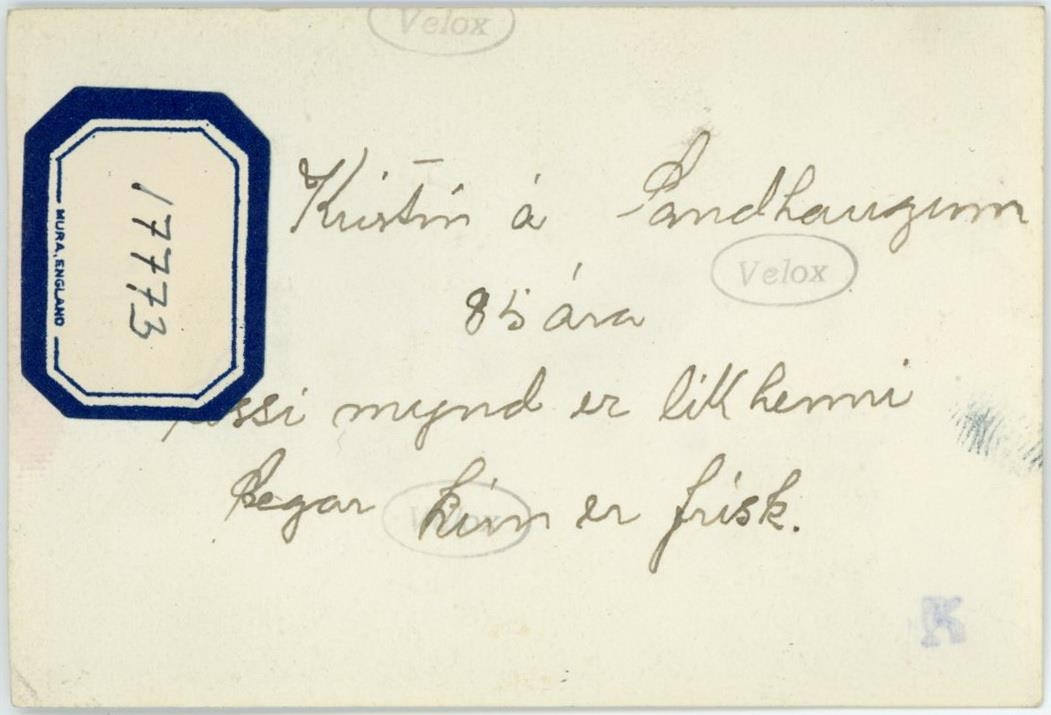 Velox
Kristín á Sandhaugum
Velox
85 ára
þessi mynd er lík henni
þegar hún er frisk.
Velox
17773
MURA, ENGLAND
K